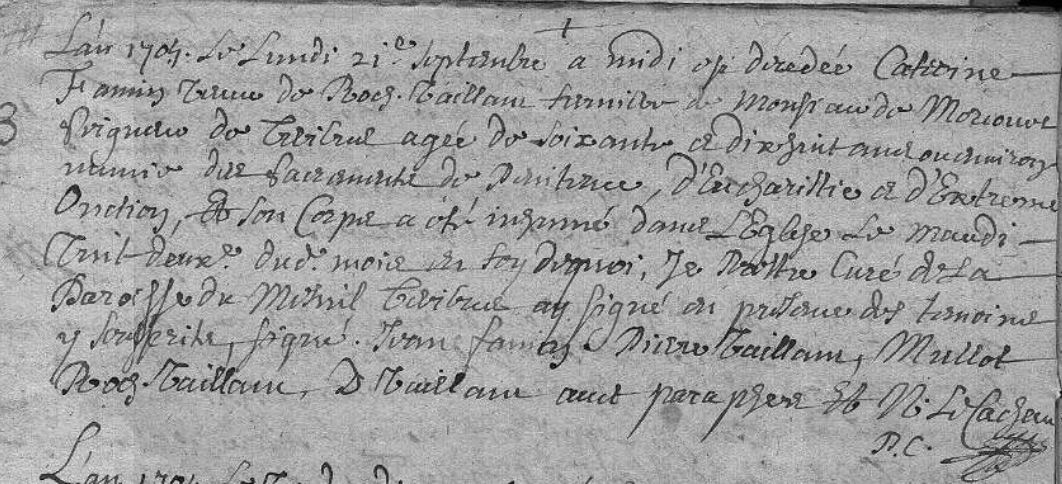 L'an 1705. Le Lundi 21e. septembre a midi est décédée Catherine
Famin veuve de Roch. Vaillant fermier de Monsieur de
Seigneur de agée de soixante et dixhuit ans ou environ
munie des Sacrements de Penitence, d'Eucharistie et d'Extreme
Onction, Et son Corps a été inhumé dans L'Eglise Le mardi
vint deuxe. dud. mois en foy dequoi, Je Prestre Curé de La
Paroisse du Mesnil ay signé en presence des temoins
y souscrits, signé. Jean famin Pierre Vaillant, Mullot
Roch Vaillant, D Vaillant avec paraphes Et N. Le Cacheu
P.C.
L'an